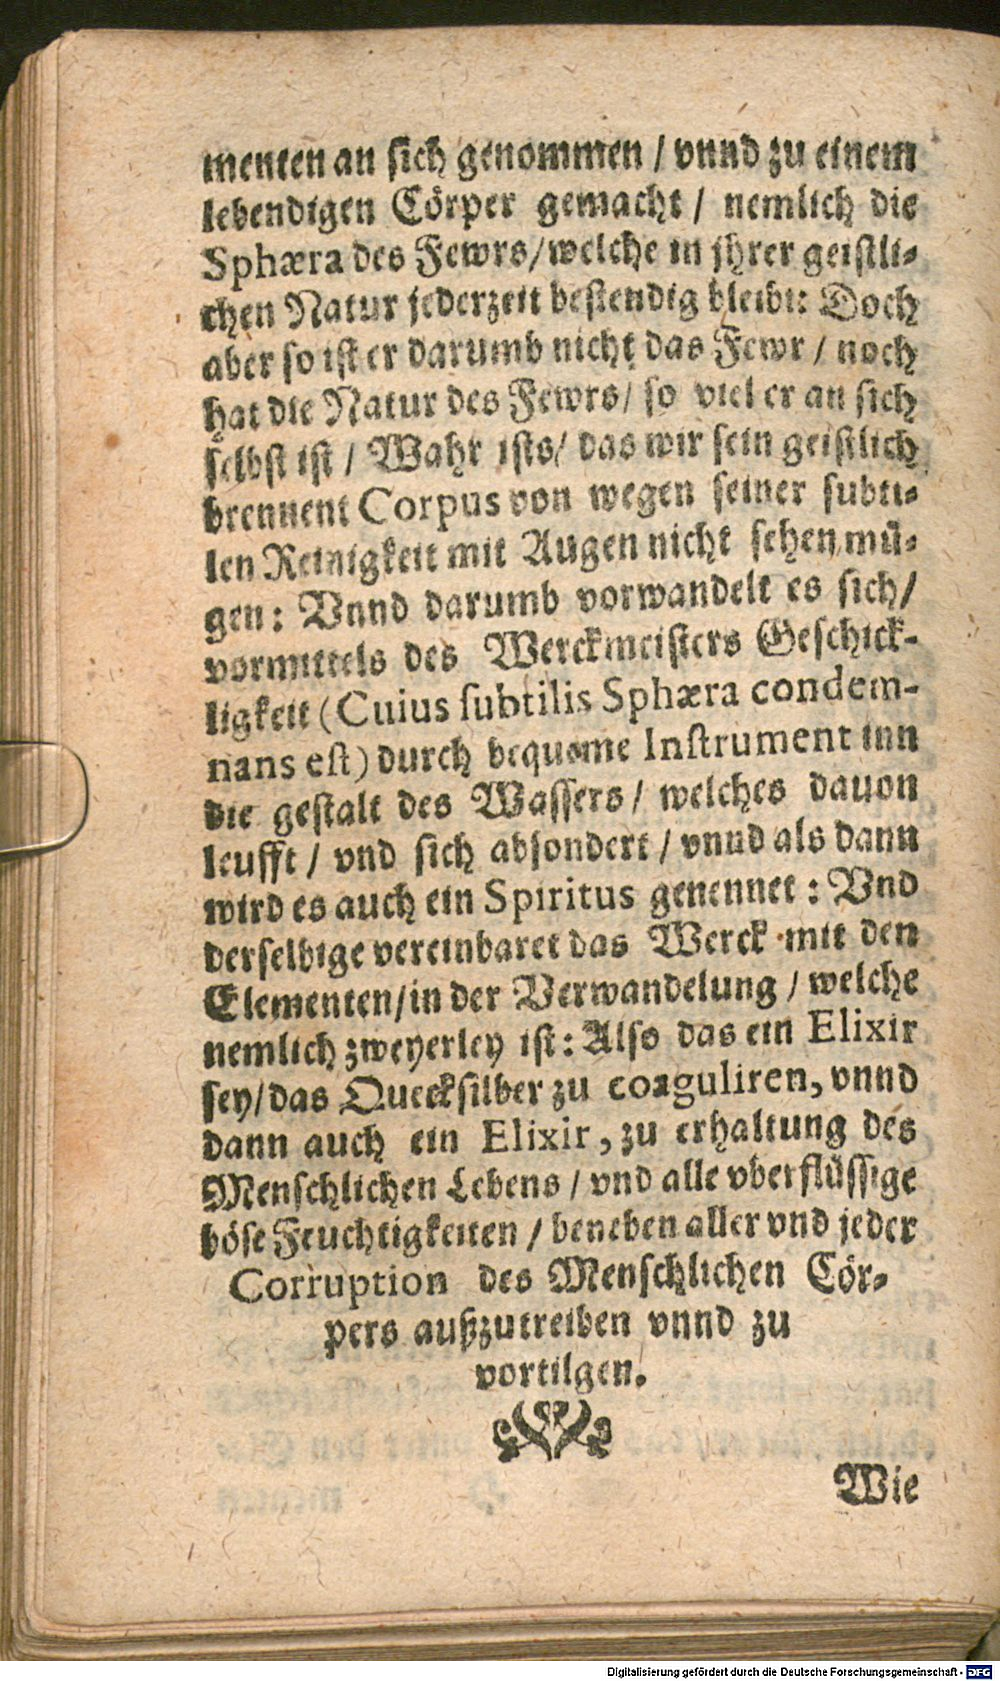 menten an sich genommen / vnnd zu einem
lebendigen Cörper gemacht / nemlich die
Sphæra des Fewrs/welche in jhrer geistli-
chen Natur jederzeit bestendig bleibt: Doch
aber so ist er darumb nicht das Fewr / noch
hat die Natur des Fewrs/ so viel er an sich
selbst ist / Wahr ists/ das wir sein geistlich
brennent Corpus von wegen seiner subti-
len Reinigkeit mit Augen nicht sehen mü-
gen: Vnnd darumb vorwandelt es sich/
vormittels des Werckmeisters Geschick-
ligkeit (Cuius subtilis Sphæra condem-
nans est) durch bequeme Instrument inn
die gestalt des Wassers / welches dauon
leufft / vnd sich absondert / vnnd als dann
wird es auch ein Spiritus genennet : Vnd
derselbige vereinbaret das Werck mit den
Elementen/in der Verwandelung / welche
nemlich zweyerley ist: Also das ein Elixir
sey/das Quecksilber zu coaguliren, vnnd
dann auch ein Elixir, zu erhaltung des
Menschlichen Lebens / vnd alle vberflüssige
böse Feuchtigkeiten / beneben aller vnd jeder
Corruption des Menschlichen Cör-
pers außzutreiben vnnd zu
vortilgen.
Wie
Digitalisierung gefördert durch die Deutsche Forschungsgemeinschaft - DFG